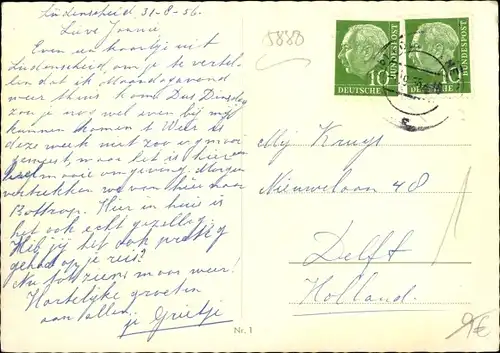 Lüdenscheid 31-8-56.
Lieve Jonnie,
Even een kaartje uit
Ludenscheid, om je te vertel-
len dat ik Maandagavond
weer thuis komt. Dus Dinsdag
zou je nog wel even bij mij
kunnen komen. t Weer is
deze week niet zoo
geweest, maar het is hier een
heel mooie omgeving. Morgen
vertrekken we van hier naar
Bottrop. Hier in huis is
het ook echt gezellig.
Heb jij het ook prettig
gehad op je reis?
Nu tot ziens maar weer!
Hartelijke groeten
aan allen, je Grietje
Nr. 1
5880
10
DEUTSCHE
BUNDESPOST
10
BUNDESPOST
Mej Kruys
Nieuwelaan 48
Delft
Holland.
9€